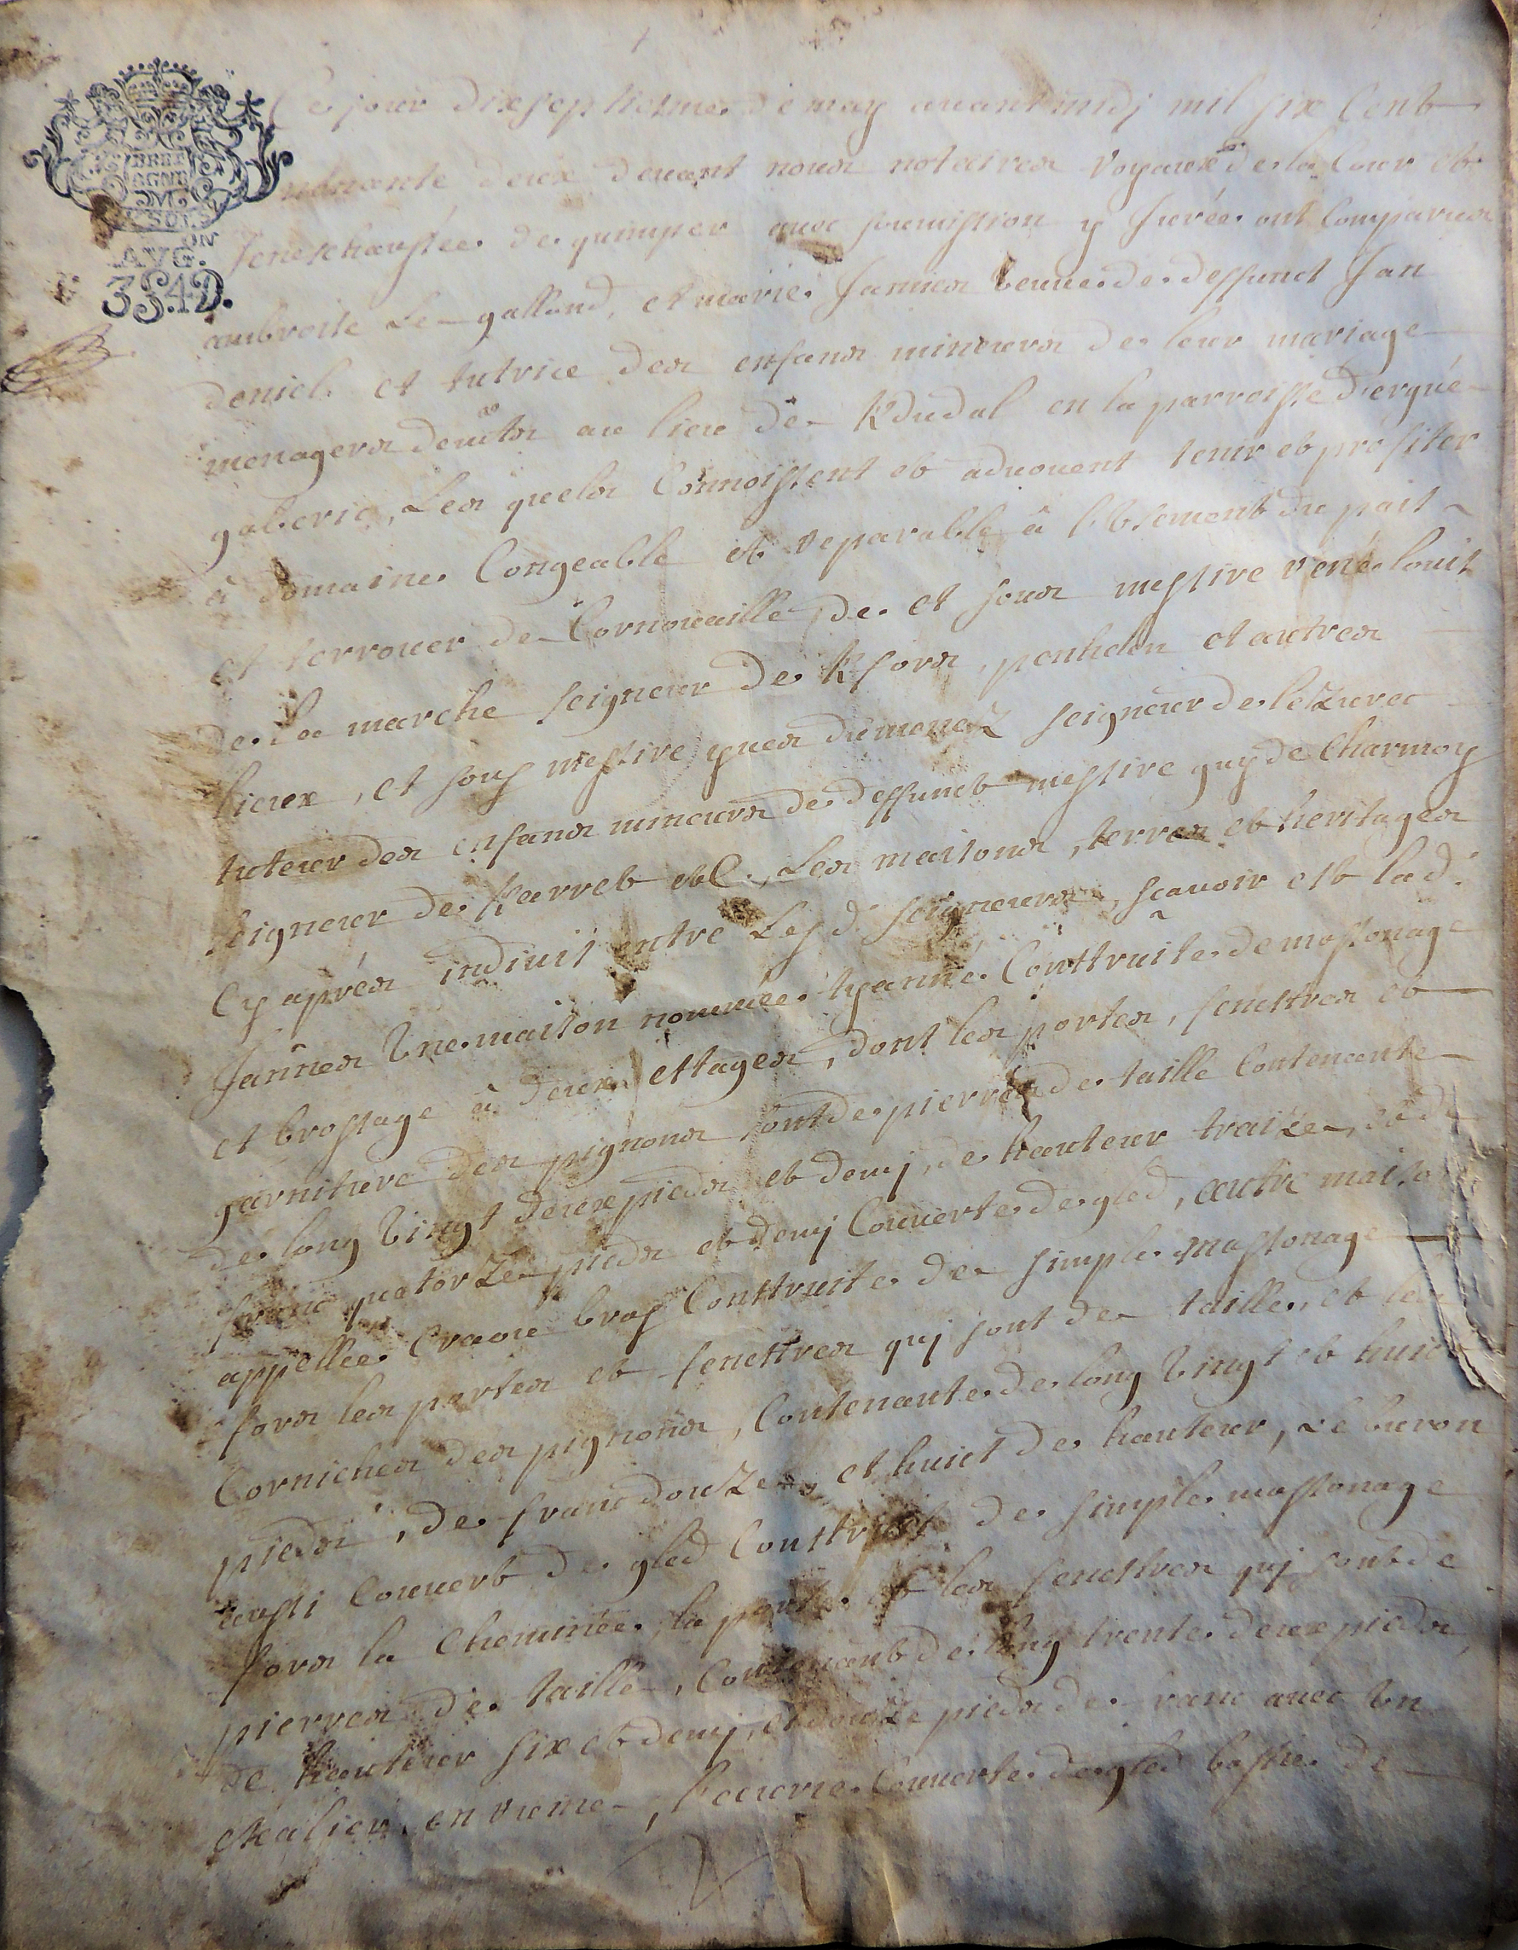 BRET
AGNE
M
SOLS
ON
AVG.
3S.4D.
Ce jour dixseptiesme de may avant midj mil six Cent
deux devant nous notaires Royaux de la Cour et
Seneschaussée de quimper avec soumission y Jurée ont Comparus
ambroise Le galland, et marie Jannes veuve de deffunct Jan
deniel et tutrice des enfans mineurs de leur mariage
menagers demts au lieu de Kdudal en la parroisse d'ergué
gaberic, Les quels Connoissent et advouent tenir et profiter
à domaine Congeable et reparable à l'Usement du pais
et terrouer de Cornouaille, de et sous messire rené louis
de la marche seigneur de Kfors, penhelen et autres
lieux, et sous messire yves du menez seigneur de lezurec
tuteur des enfans mineurs de deffunct messire guy de Charmoy
seigneur de Kerret etC., Les maisons, terres et heritages
Cy aprés indivis entre Les d. seigneurs, scavoir est lad.
Jannes Une maison nommée tyanne Construite de massonage
et brossage à deux estages, dont les portes, fenestres et
garniture des pignons sont de pierres de taille Contenante
de long Vingt deux pieds et demj, de hauteur traize, et de
franc quatorze pieds et demj Couverte de gled, autre maison
appellee Craou bras Construite de simple massonage
fors les portes et fenestres quj sont de taille, et les
Corniches des pignons, Contenante de long Vingt et huict
pieds, de franc douze, et huict de hauteur, Le buron
aussi Couvert de gled Construit de simple massonage
fors la Cheminée, la porte et les fenestres quj sont de
pierres de taille, Contenant de long trente deux pieds,
de hauteur six et demj, et douze pieds de franc avec Un
escalier en ruine, l'ecurie Couverte de gled bastie de